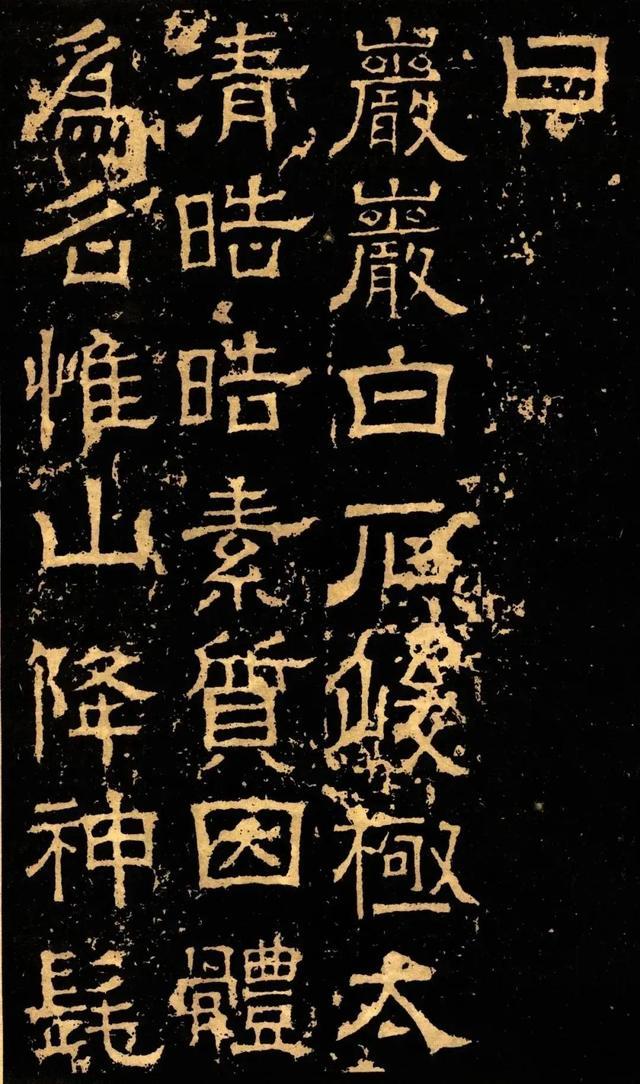 曰
巖巖白石峻極太
清皓皓素質因體
爲名惟山降神髦